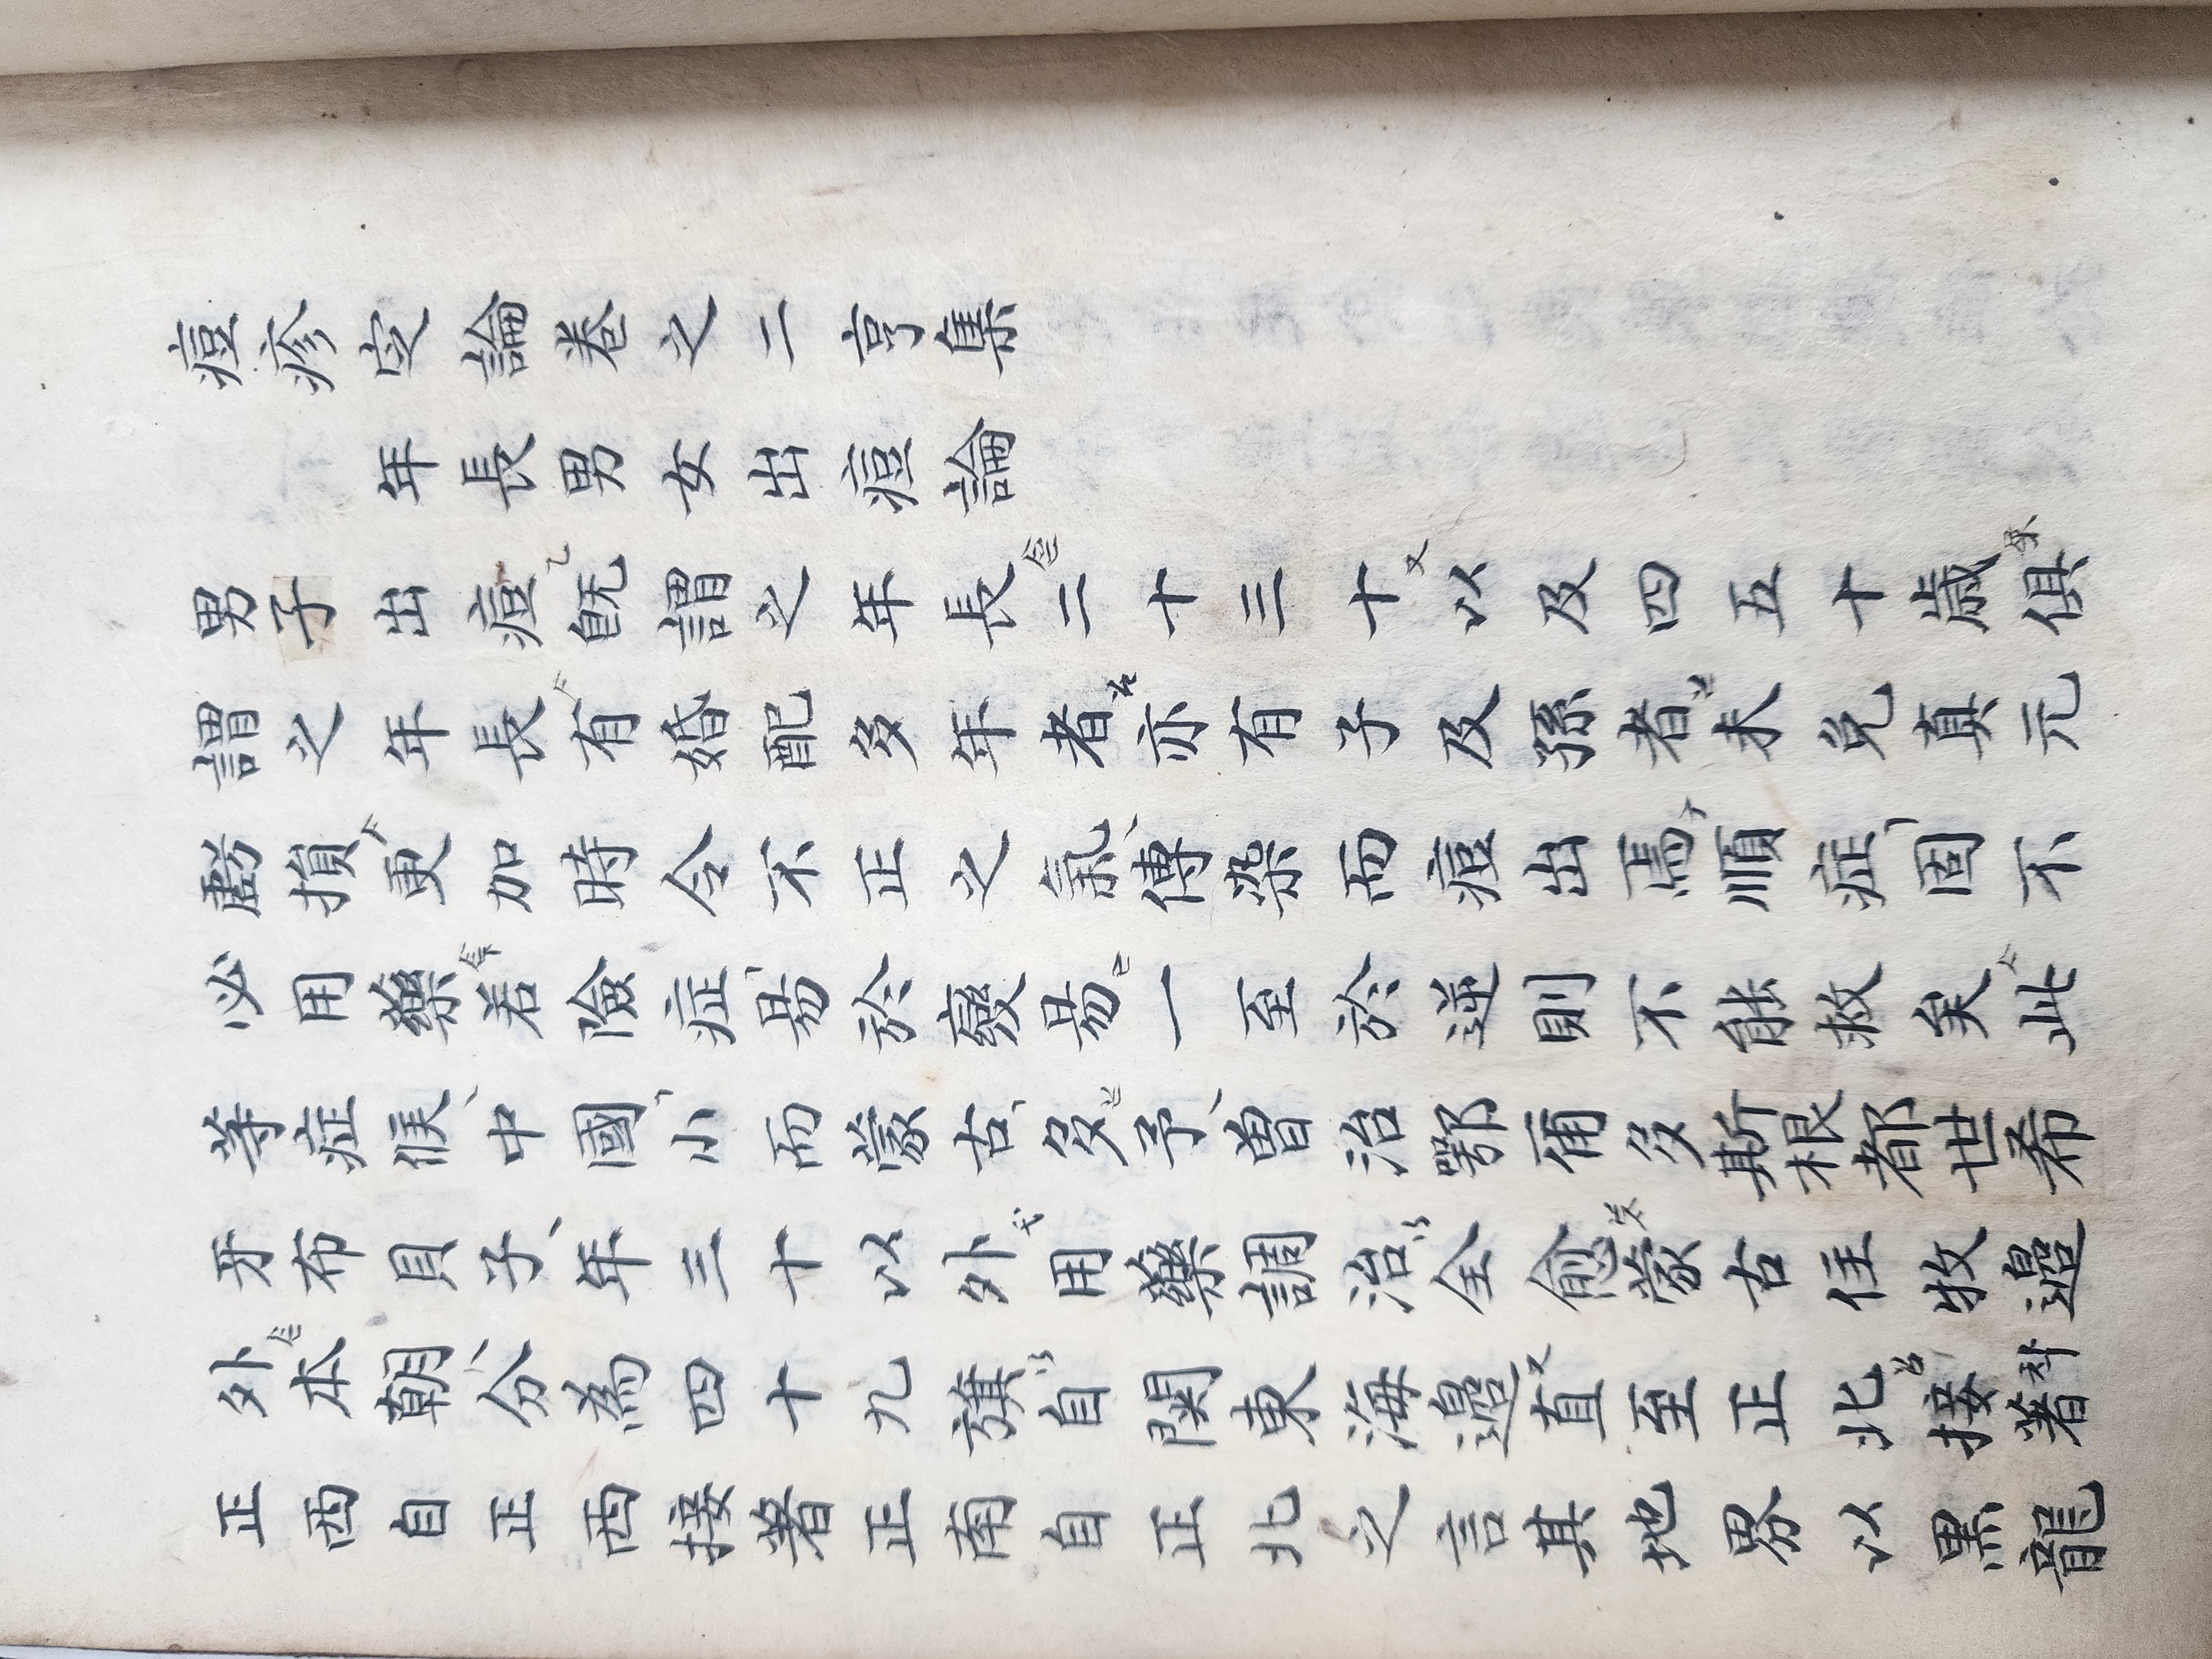 痘疹定論卷之二亨集
年長男女出痘論
男子出痘既謂之年長二十三十以及四五十歲俱
謂之年長有婚配多年者亦有子及孫者未免真元
虧損更加時令不正之氣傳染而痘出焉順症固不
必用藥若險症易於變易一至於逆則不能救矣此
等症候中國小而蒙古多予曾治鄂爾多斯根都世希
牙布貝子年三十以外用藥調治全愈蒙古住牧邊
外本朝分為四十九旗自関東海邊直至正北接著
正西自正西接著正南自正北之言其地界以黒龍